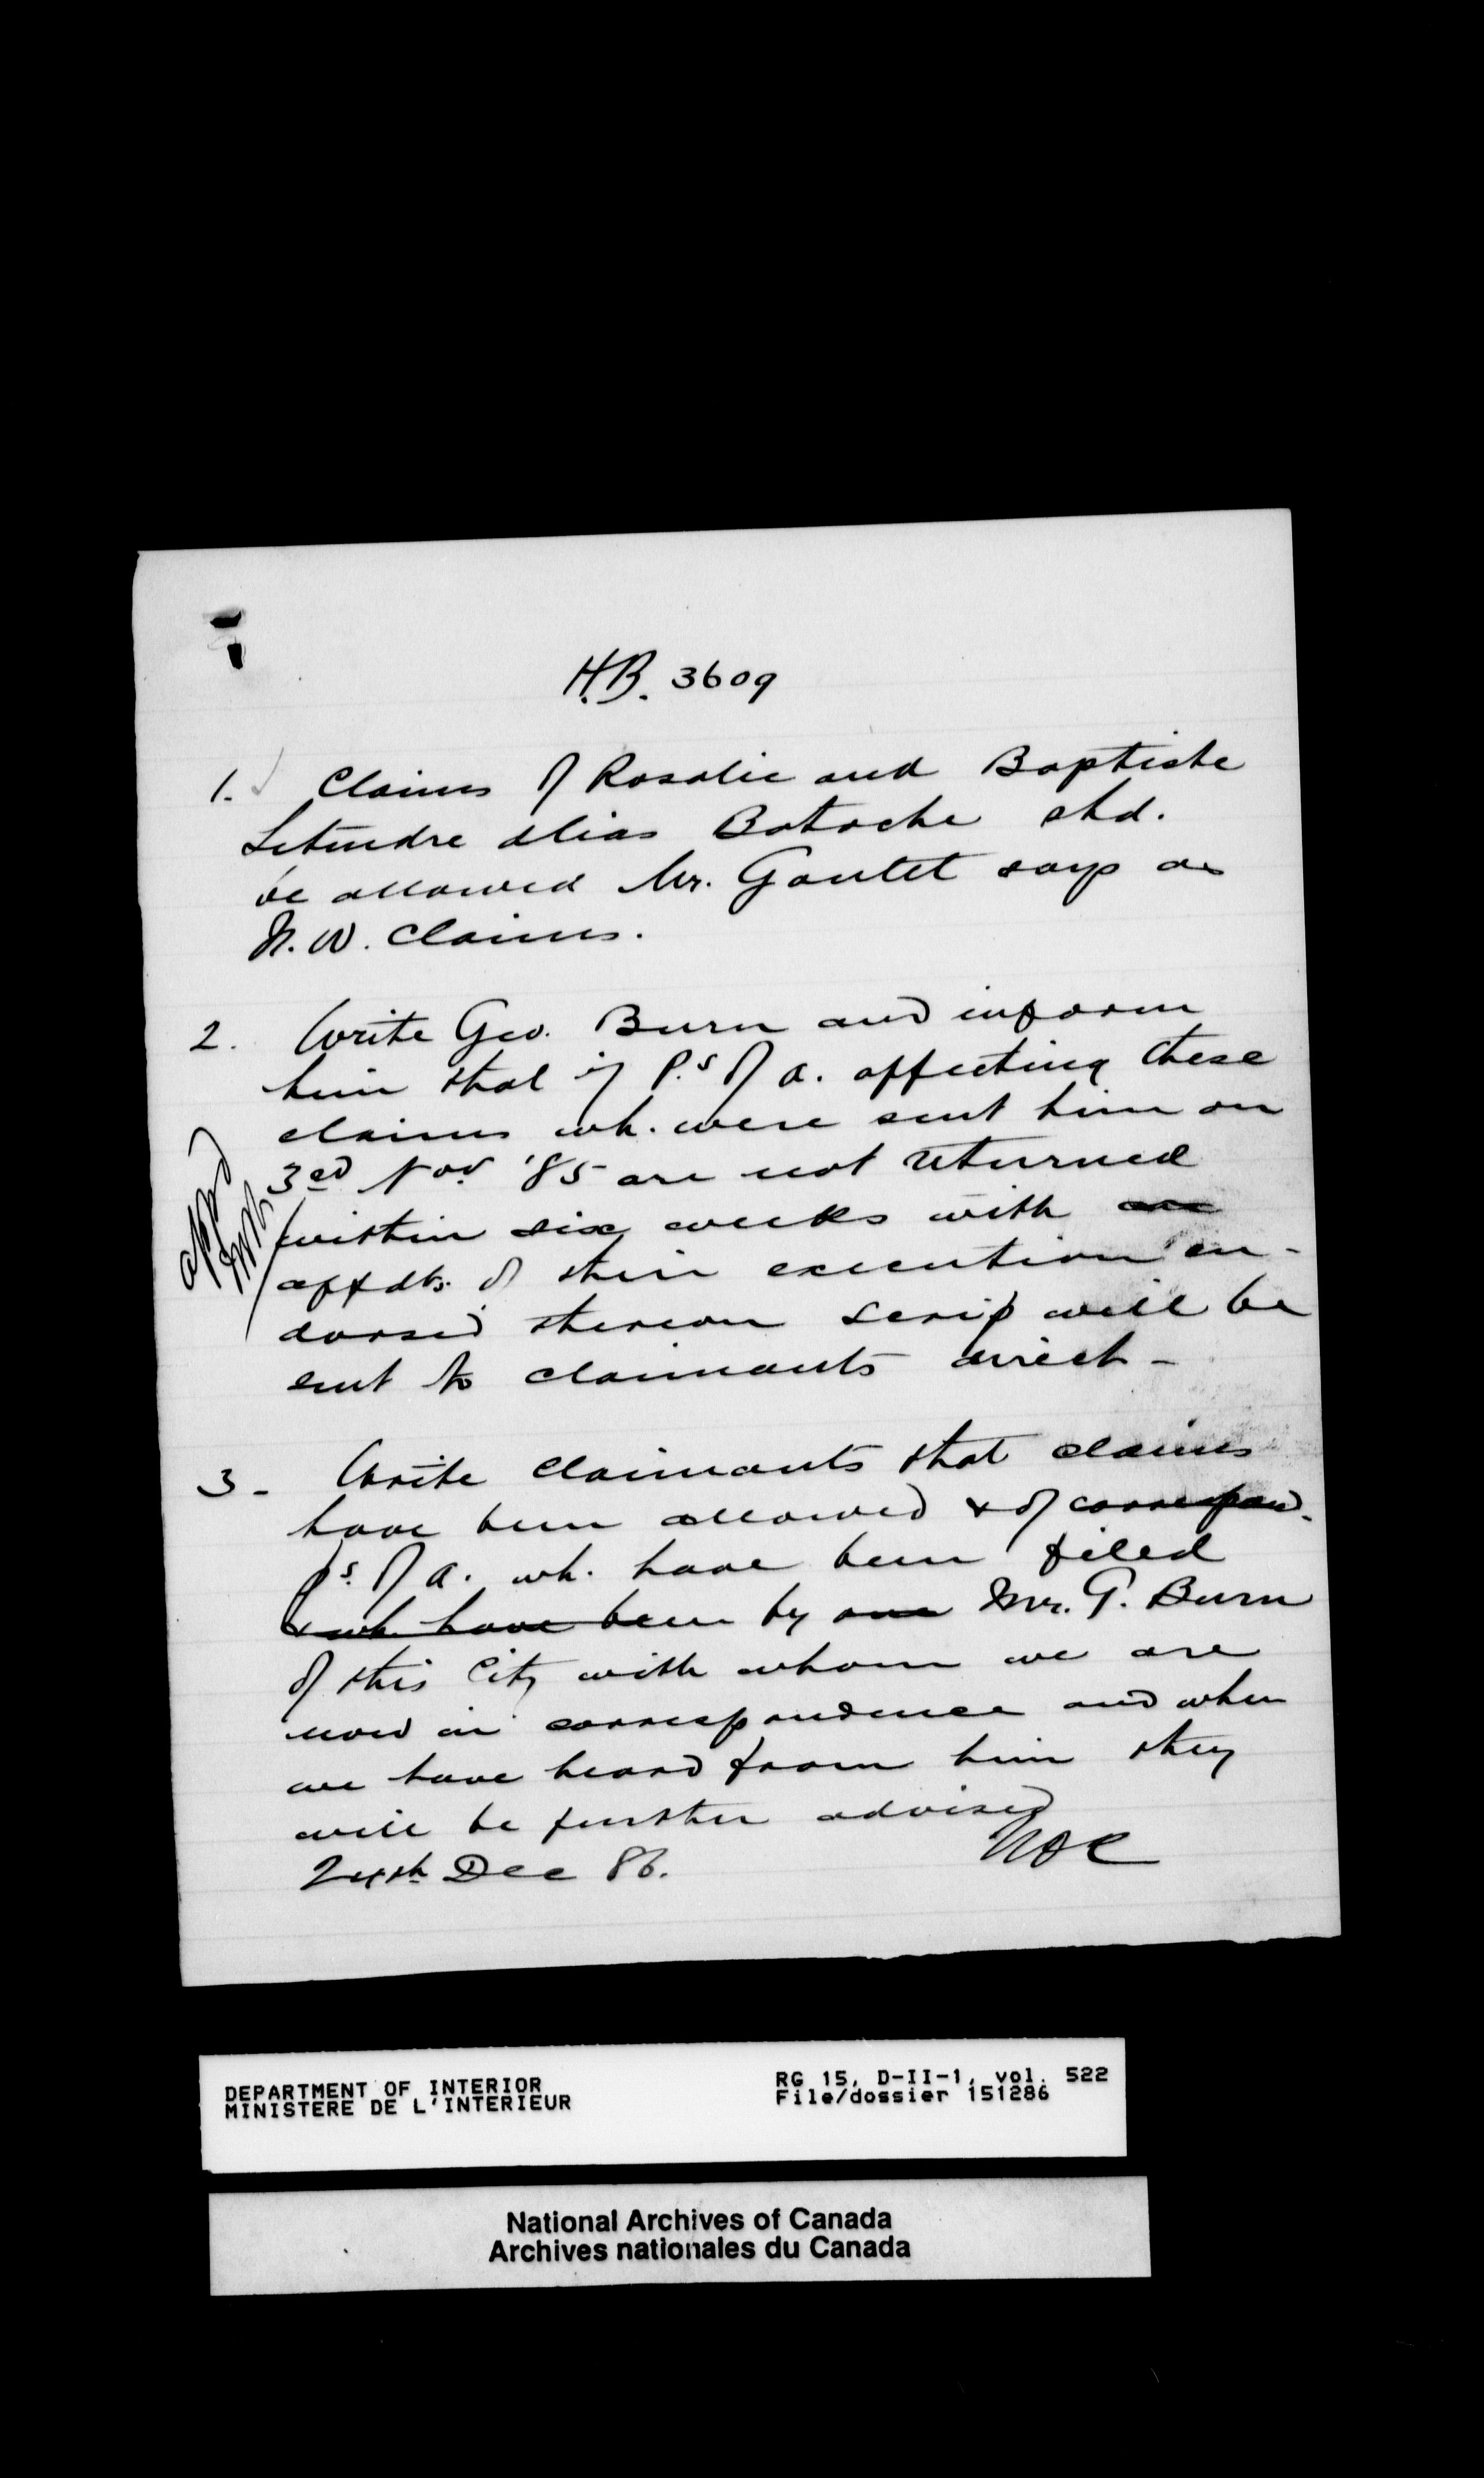 H.B. 3609
1. Claims of Rosalie and Baptiste
Letendre alias Batoche shd.
be allowed Mr. Goulet says as
N.W. Claims.
2. Write Geo. Burn and inform
him that if P.s of A. affecting these
claims wh. were sent him on
3rd Nov. '85 are not returned
within six weeks with an
affdts. of their execution en-
dorsed thereon scrip will be
sent to claimants direct -
appd
3 - Write claimants that claims
have been allowed & of correspond.
Ps. of A. wh. have been filed
& wh. have been by one Mr. G. Burn
of this City with whom we are
now in correspondence and when
we have heard from him they
will be further advised
24th Dec 86.
DEPARTMENT OF INTERIOR
MINISTERE DE L'INTERIEUR
RG 15, D-II-1, vol. 522
File/dossier 151286
National Archives of Canada
Archives nationales du Canada